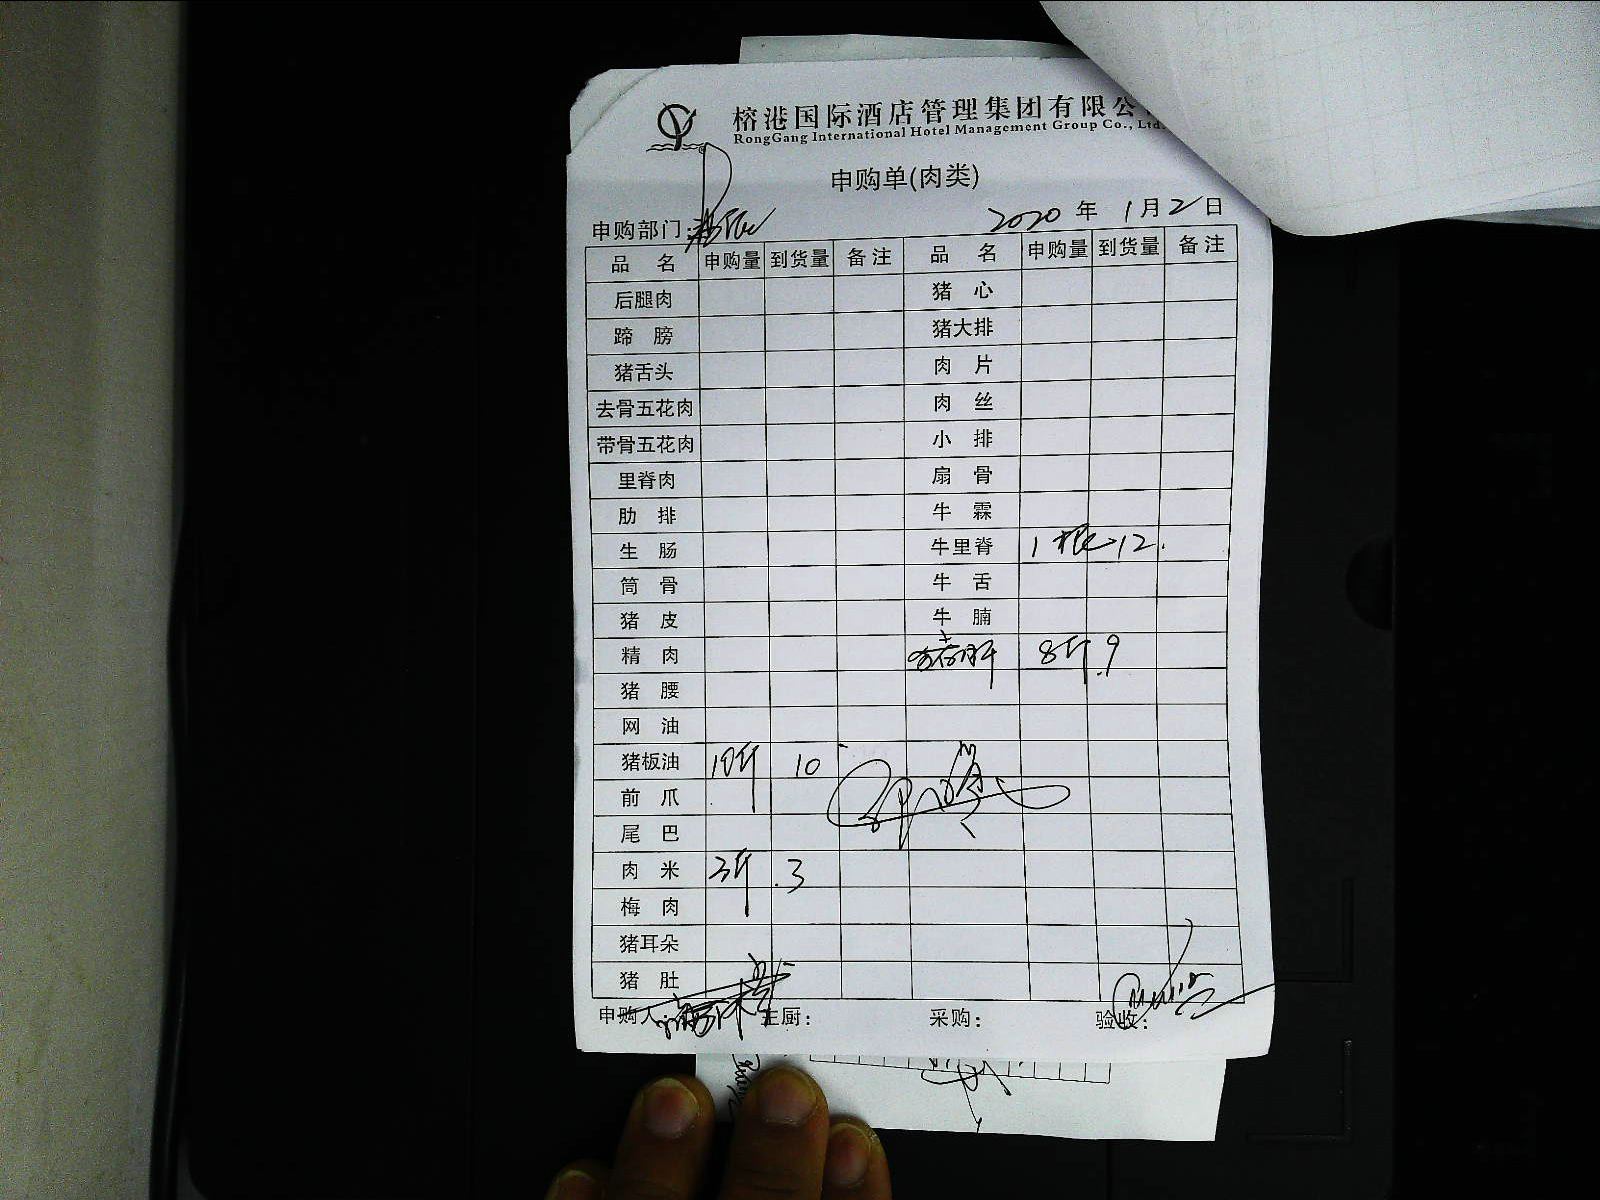 榕港国际酒店管理集团有限公
RongGang International Hotel Management Group Co., Ltd.
申购单(肉类)
申购部门: 2020 年 1 月 2 日
品 名 申购量 到货量 备注 品 名 申购量 到货量 备注
后腿肉 猪 心
蹄 膀 猪大排
猪舌头 肉 片
去骨五花肉 肉 丝
带骨五花肉 小 排
里脊肉 扇 骨
肋 排 牛 霖
生 肠 牛里脊 1根 12.
筒 骨 牛 舌
猪 皮 牛 腩
精 肉 猪肝 8斤 9
猪 腰
网 油
猪板油 10斤 10
前 爪
尾 巴
肉 米 3斤 3
梅 肉
猪耳朵
猪 肚
申购人: 主厨: 采购: 验收: